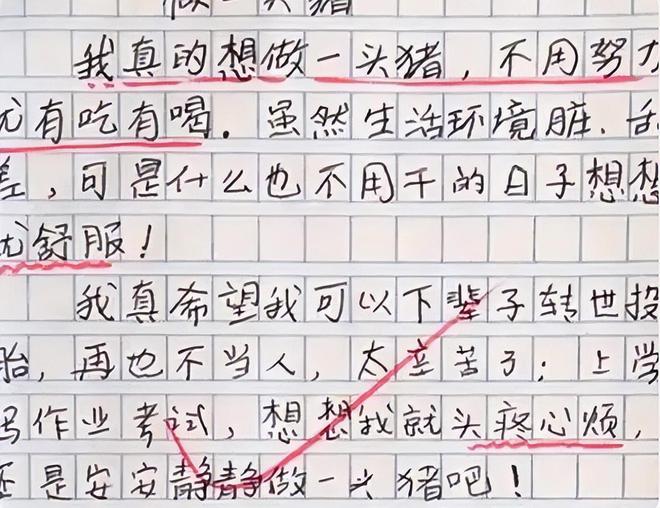 做一头猪
我真的想做一头猪，不用努力
尤有吃有喝．虽然生活环境脏．乱
差，可是什么也不用干的日子想想
尤舒服！
我真希望我可以下辈子转世投
胎，再也不当人，太辛苦了；上学
写作业考试，想想我就头疼心烦，
还是安安静静做一头猪吧！